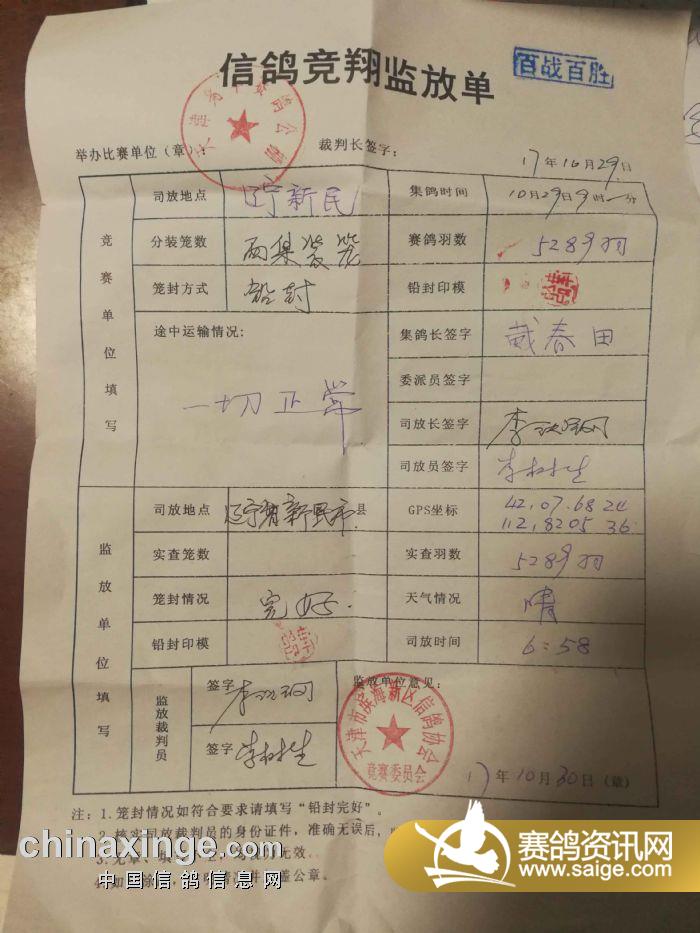 信鸽竞翔监放单
百战百胜
举办比赛单位（章）：
裁判长签字：
17年10月29日
竞赛单位填写
司放地点 辽宁新民 集鸽时间 10月29日9时一分
分装笼数 两集装笼 赛鸽羽数 5289羽
笼封方式 铅封 铅封印模
途中运输情况：
一切正常
集鸽长签字 戴春田
委派员签字
司放长签字
司放员签字
监放单位填写
司放地点 辽宁省新民市县 GPS坐标 42.07.6824
112.8205 36
实查笼数 实查羽数 5289羽
笼封情况 完好. 天气情况 晴
铅封印模 司放时间 6:58
监放裁判员
签字
签字
监放单位意见：
天津市滨海新区信鸽协会
竞赛委员会
17年10月30日（章）
注：1.笼封情况如符合要求请填写“铅封完好”。
2.核实司放裁判员的身份证件，准确无误后，
3.无章、
chinaxinge.com
中国信鸽信息网
赛鸽资讯网
www.saige.com